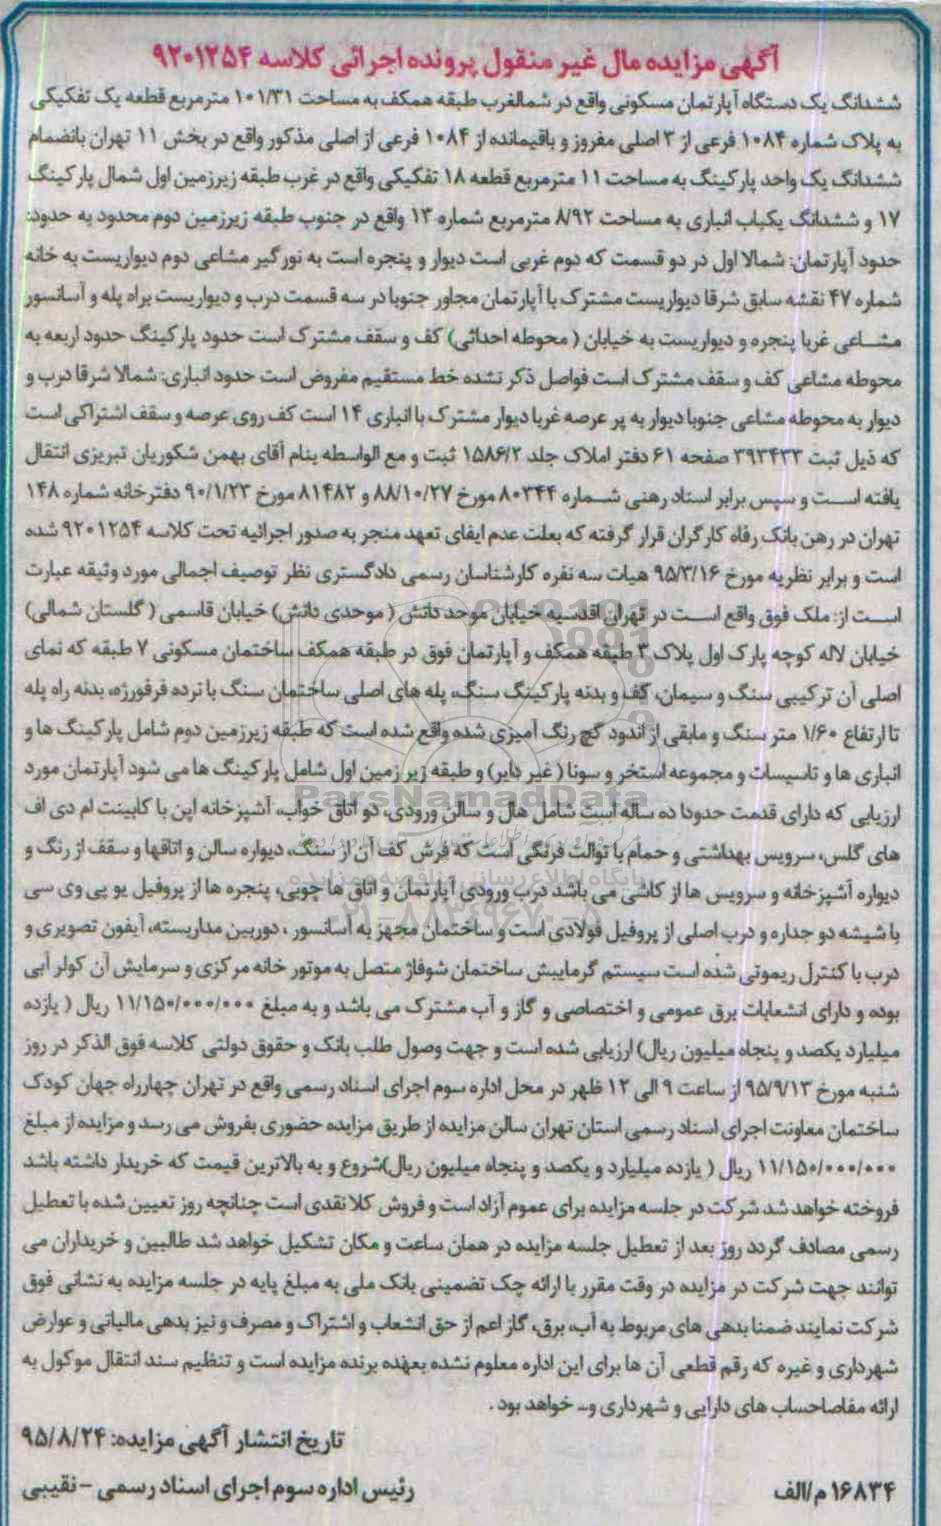 آگهی مزایده مال غیر منقول پرونده اجرائی کلاسه ۹۲۰۱۲۵۴
ششدانگ یک دستگاه آپارتمان مسکونی واقع در شمالغرب طبقه همکف به مساحت ۱۰۱/۳۱ مترمربع قطعه یک تفکیکی
به پلاک شماره ۱۰۸۴ فرعی از ۳ اصلی مفروز و باقیمانده از ۱۰۸۴ فرعی از اصلی مذکور واقع در بخش ۱۱ تهران بانضمام
ششدانگ یک واحد پارکینگ به مساحت ۱۱ مترمربع قطعه ۱۸ تفکیکی واقع در غرب طبقه زیرزمین اول شمال پارکینگ
۱۷ و ششدانگ یکباب انباری به مساحت ۸/۹۲ مترمربع شماره ۱۳ واقع در جنوب طبقه زیرزمین دوم محدود به حدود:
حدود آپارتمان: شمالا اول در دو قسمت که دوم غربی است دیوار و پنجره است به نورگیر مشاعی دوم دیواریست به خانه
شماره ۴۷ نقشه سابق شرقا دیواریست مشترک با آپارتمان مجاور جنوبا در سه قسمت درب و دیواریست براه پله و آسانسور
مشاعی غربا پنجره و دیواریست به خیابان ( محوطه احداثی) کف و سقف مشترک است حدود پارکینگ حدود اربعه به
محوطه مشاعی کف و سقف مشترک است فواصل ذکر نشده خط مستقیم مفروض است حدود انباری: شمالا شرقا درب و
دیوار به محوطه مشاعی جنوبا دیوار به پر عرصه غربا دیوار مشترک با انباری ۱۴ است کف روی عرصه و سقف اشتراکی است
که ذیل ثبت ۳۹۳۴۳۳ صفحه ۶۱ دفتر املاک جلد ۱۵۸۶/۲ ثبت و مع الواسطه بنام آقای بهمن شکوریان تبریزی انتقال
یافته است و سپس برابر اسناد رهنی شماره ۸۰۳۴۴ مورخ ۸۸/۱۰/۲۷ و ۸۱۴۸۲ مورخ ۹۰/۱/۲۳ دفترخانه شماره ۱۴۸
تهران در رهن بانک رفاه کارگران قرار گرفته که بعلت عدم ایفای تعهد منجر به صدور اجرائیه تحت کلاسه ۹۲۰۱۲۵۴ شده
است و برابر نظریه مورخ ۹۵/۳/۱۶ هیات سه نفره کارشناسان رسمی دادگستری نظر توصیف اجمالی مورد وثیقه عبارت
است از: ملک فوق واقع است در تهران اقدسیه خیابان موحد دانش ( موحدی دانش) خیابان قاسمی ( گلستان شمالی)
خیابان لاله کوچه پارک اول پلاک ۳ طبقه همکف و آپارتمان فوق در طبقه همکف ساختمان مسکونی ۷ طبقه که نمای
اصلی آن ترکیبی سنگ و سیمان، کف و بدنه پارکینگ سنگ، پله های اصلی ساختمان سنگ با نرده فرفورژه، بدنه راه پله
تا ارتفاع ۱/۶۰ متر سنگ و مابقی از اندود گچ رنگ آمیزی شده واقع شده است که طبقه زیرزمین دوم شامل پارکینگ ها و
انباری ها و تاسیسات و مجموعه استخر و سونا ( غیر دایر) و طبقه زیر زمین اول شامل پارکینگ ها می شود آپارتمان مورد
ارزیابی که دارای قدمت حدودا ده ساله است شامل هال و سالن ورودی، دو اتاق خواب، آشپزخانه اپن با کابینت ام دی اف
های گلس، سرویس بهداشتی و حمام با توالت فرنگی است که فرش کف آن از سنگ، دیواره سالن و اتاقها و سقف از رنگ و
دیواره آشپزخانه و سرویس ها از کاشی می باشد درب ورودی آپارتمان و اتاق ها چوبی، پنجره ها از پروفیل یو پی وی سی
با شیشه دو جداره و درب اصلی از پروفیل فولادی است و ساختمان مجهز به آسانسور ، دوربین مداربسته، آیفون تصویری و
درب با کنترل ریموتی شده است سیستم گرمایش ساختمان شوفاژ متصل به موتور خانه مرکزی و سرمایش آن کولر آبی
بوده و دارای انشعابات برق عمومی و اختصاصی و گاز و آب مشترک می باشد و به مبلغ ۱۱/۱۵۰/۰۰۰/۰۰۰ ریال ( یازده
میلیارد یکصد و پنجاه میلیون ریال) ارزیابی شده است و جهت وصول طلب بانک و حقوق دولتی کلاسه فوق الذکر در روز
شنبه مورخ ۹۵/۹/۱۳ از ساعت ۹ الی ۱۲ ظهر در محل اداره سوم اجرای اسناد رسمی واقع در تهران چهارراه جهان کودک
ساختمان معاونت اجرای اسناد رسمی استان تهران سالن مزایده از طریق مزایده حضوری بفروش می رسد و مزایده از مبلغ
۱۱/۱۵۰/۰۰۰/۰۰۰ ریال ( یازده میلیارد و یکصد و پنجاه میلیون ریال)شروع و به بالاترین قیمت که خریدار داشته باشد
فروخته خواهد شد شرکت در جلسه مزایده برای عموم آزاد است و فروش کلا نقدی است چنانچه روز تعیین شده با تعطیل
رسمی مصادف گردد روز بعد از تعطیل جلسه مزایده در همان ساعت و مکان تشکیل خواهد شد طالبین و خریداران می
توانند جهت شرکت در مزایده در وقت مقرر با ارائه چک تضمینی بانک ملی به مبلغ پایه در جلسه مزایده به نشانی فوق
شرکت نمایند ضمنا بدهی های مربوط به آب، برق، گاز اعم از حق انشعاب و اشتراک و مصرف و نیز بدهی مالیاتی و عوارض
شهرداری و غیره که رقم قطعی آن ها برای این اداره معلوم نشده بعهده برنده مزایده است و تنظیم سند انتقال موکول به
ارائه مفاصاحساب های دارایی و شهرداری و... خواهد بود .
تاریخ انتشار آگهی مزایده: ۹۵/۸/۲۴
۱۶۸۳۴ م/الف
رئیس اداره سوم اجرای اسناد رسمی - نقیبی
ParsNamadData
پایگاه اطلاع رسانی مناقصه و مزایده